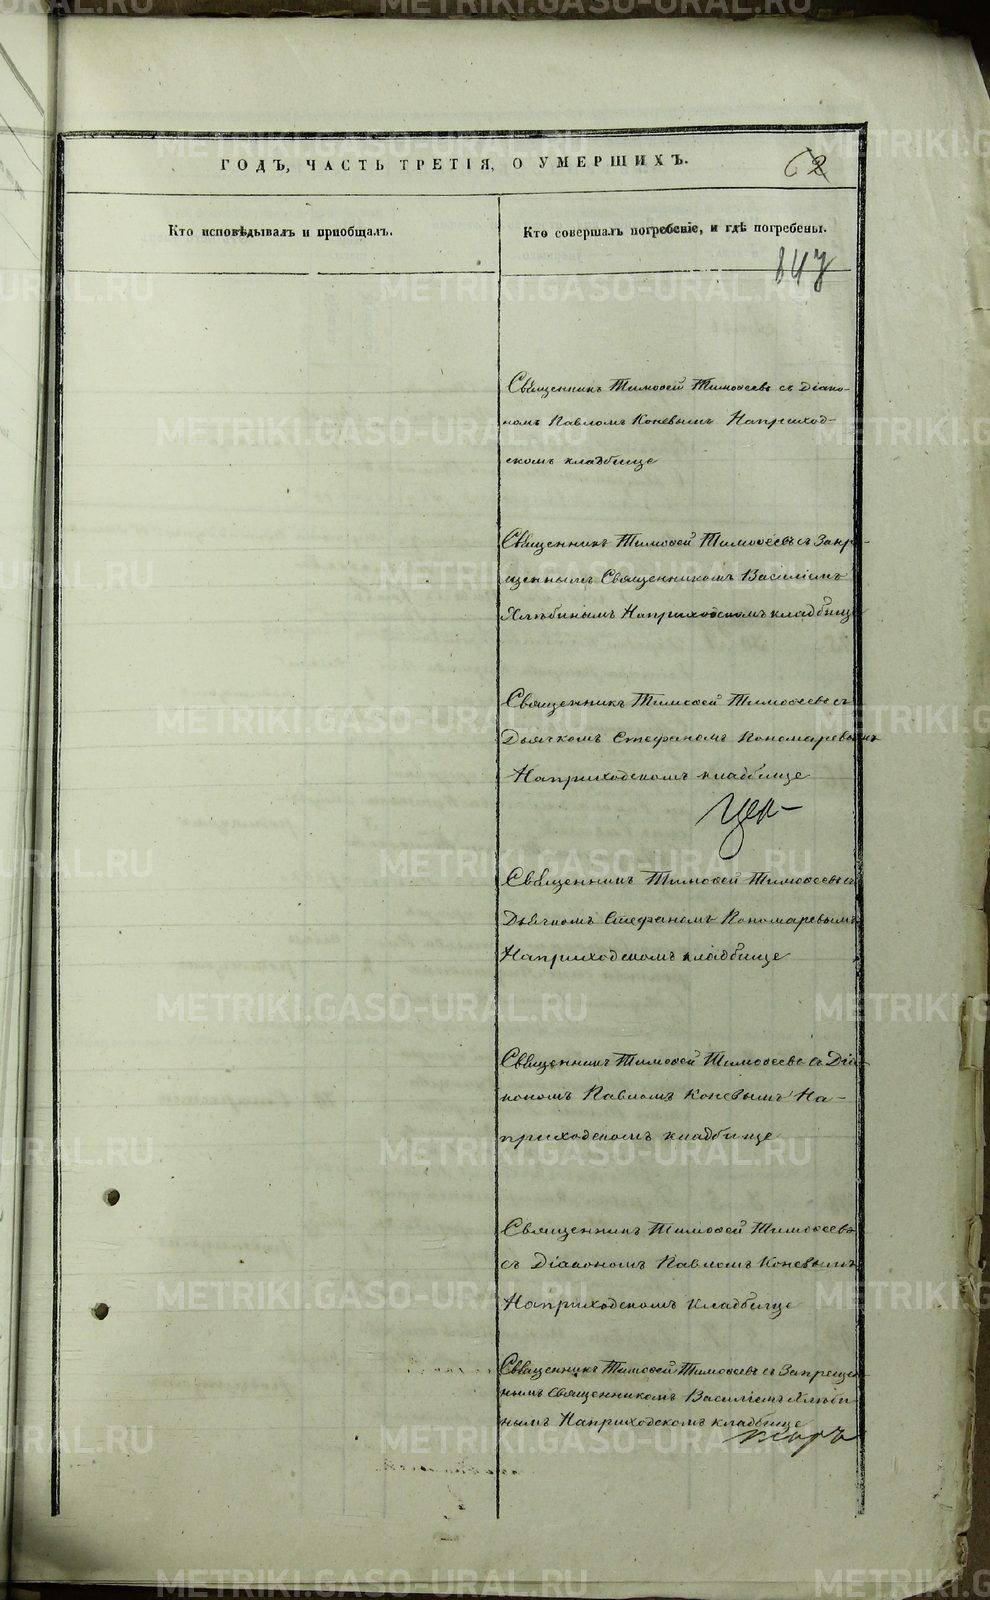 ГОДЪ, ЧАСТЬ ТРЕТІЯ, О УМЕРШИХЪ.
62
Кто исповѣдывалъ и пріобщалъ.
Кто совершалъ погребеніе, и гдѣ погребены.
847
Священникъ Тимоѳей Тимоѳеевъ съ Діако-
номъ Павломъ Коневымъ Наприход-
скомъ кладбище
Священникъ Тимоѳей Тимоѳеевъ съ Запре-
щеннымъ Священникомъ Василіемъ
Хлѣбинымъ Наприходскомъ кладбище
Священникъ Тимоѳей Тимоѳеевъ съ
Дьячкомъ Стефаномъ Пономаревымъ
Наприходскомъ кладбище
Священникъ Тимоѳей Тимоѳеевъ съ
Дьячкомъ Стефаномъ Пономаревымъ
Наприходскомъ кладбище
Священникъ Тимоѳей Тимоѳеевъ съ Діа-
кономъ Павломъ Коневымъ На-
приходскомъ кладбище
Священникъ Тимоѳей Тимоѳеевъ
съ Діакономъ Павломъ Коневымъ
Наприходскомъ кладбище
Священникъ Тимоѳей Тимоѳеевъ съ Запрещен-
нымъ Священникомъ Василіемъ Хлѣби
нымъ Наприходскомъ кладбище
METRIKI.GASO-URAL.RU